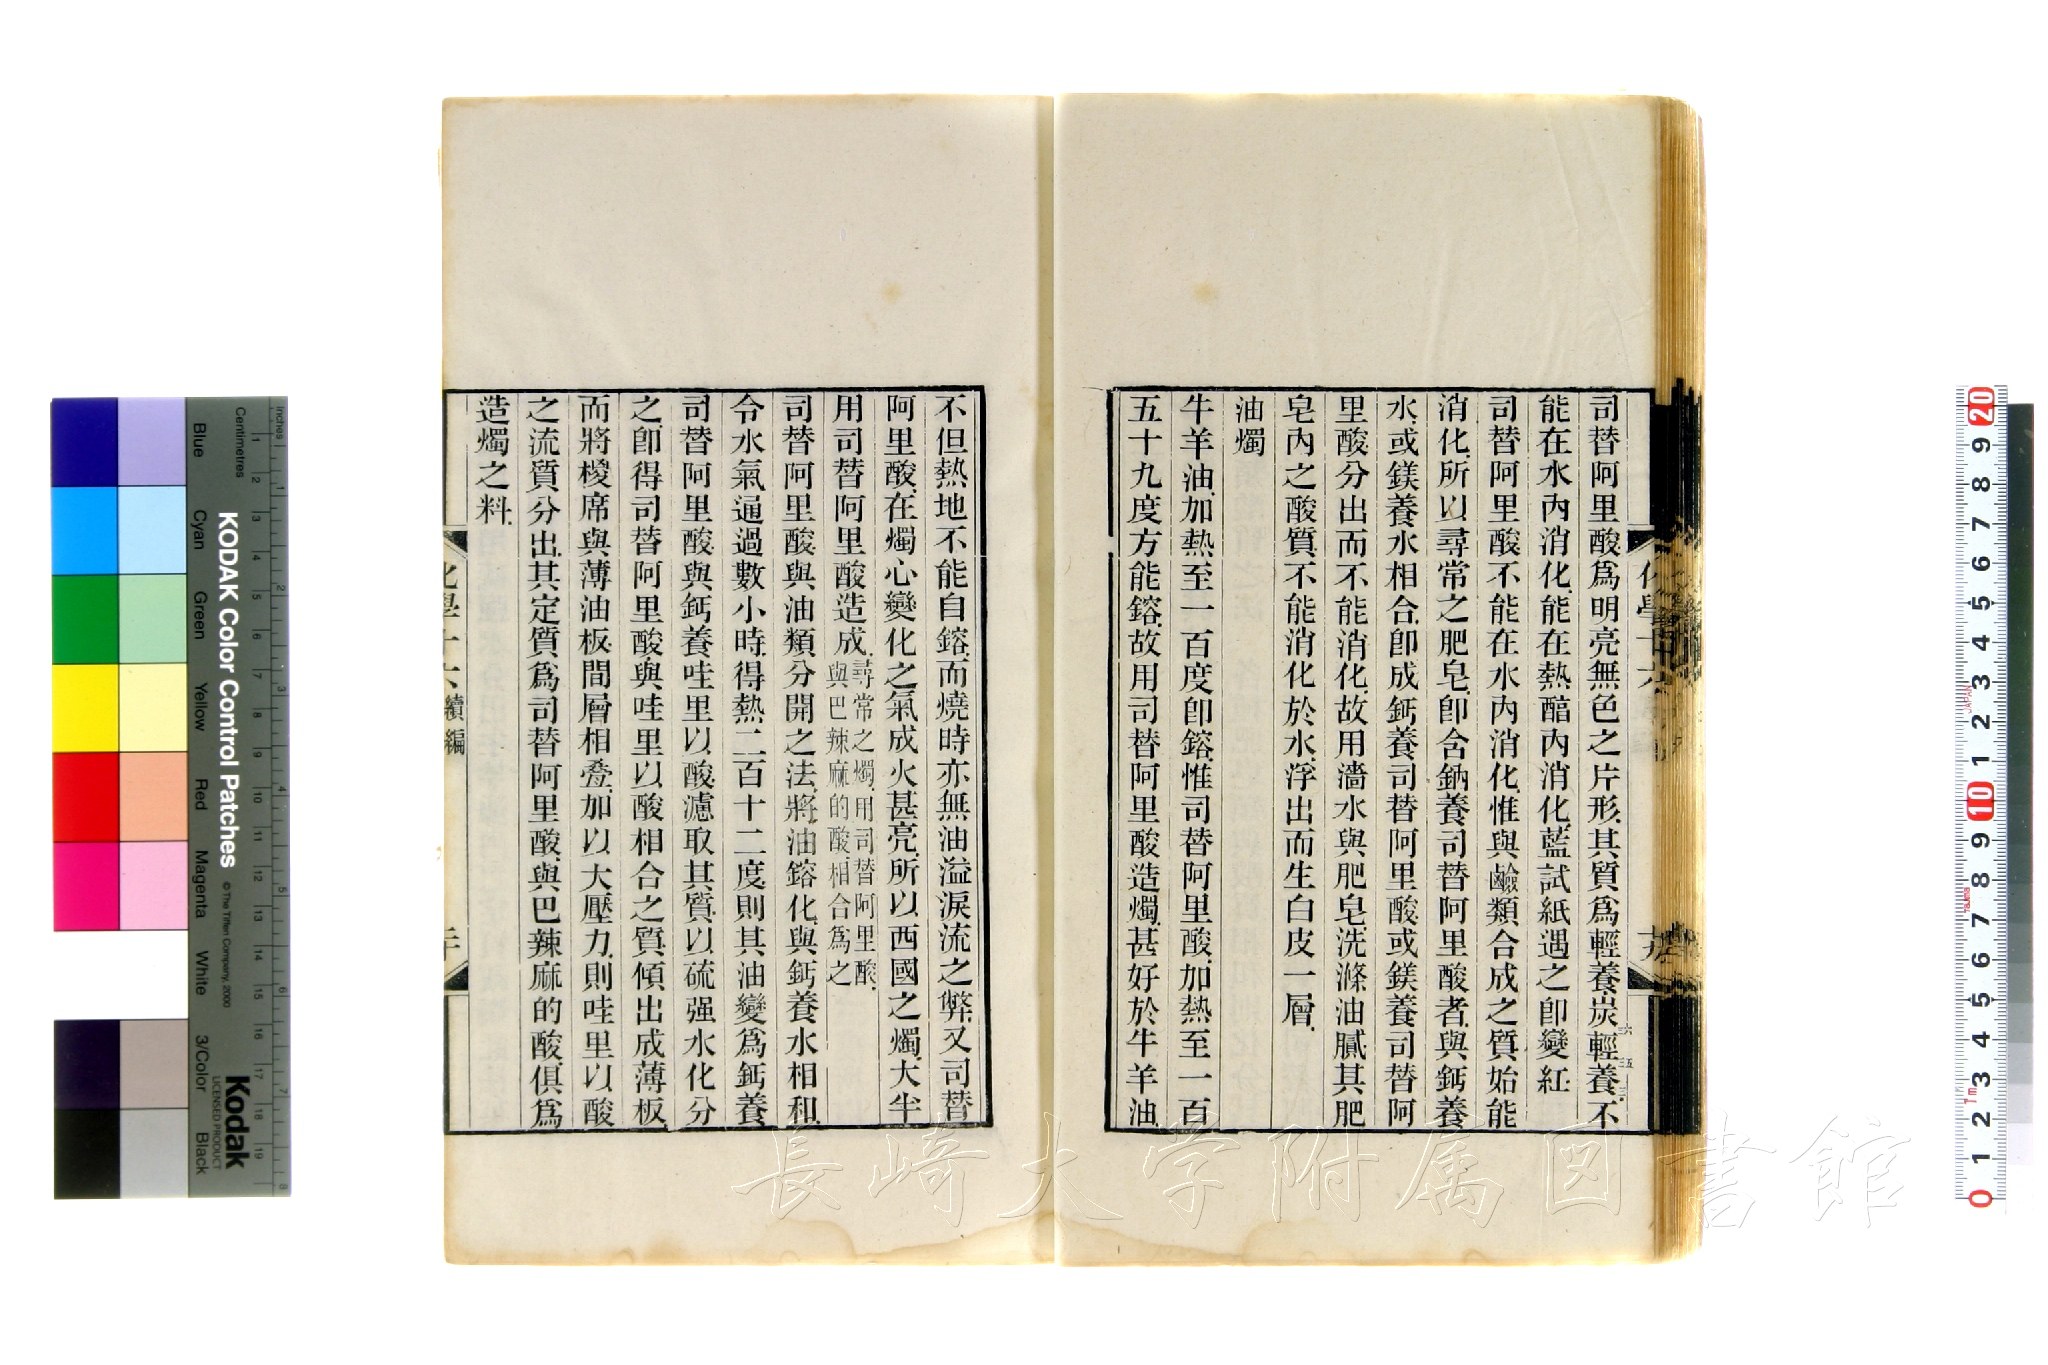 司替阿里酸爲明亮無色之片形其質爲輕養炭輕養不
能在水內消化能在熱醕內消化藍試紙遇之卽變紅
司替阿里酸不能在水內消化惟與鹼類合成之質始能
消化所以尋常之肥皂卽含鈉養司替阿里酸者與鈣養
水或鎂養水相合卽成鈣養司替阿里酸或鎂養司替阿
里酸分出而不能消化故用濇水與肥皂洗滌油膩其肥
皂內之酸質不能消化於水浮出而生白皮一層
油燭
牛羊油加熱至一百度卽鎔惟司替阿里酸加熱至一百
五十九度方能鎔故用司替阿里酸造燭甚好於牛羊油
化學十六
十九
不但熱地不能自鎔而燒時亦無油溢淚流之弊又司替
阿里酸在燭心變化之氣成火甚亮所以西國之燭大半
用司替阿里酸造成尋常之燭用司替阿里酸
與巴辣麻的酸相合爲之
司替阿里酸與油類分開之法將油鎔化與鈣養水相和
令水氣通過數小時得熱二百十二度則其油變爲鈣養
司替阿里酸與鈣養哇里以酸濾取其質以硫强水化分
之卽得司替阿里酸與哇里以酸相合之質傾出成薄板
而將椶席與薄油板間層相疊加以大壓力則哇里以酸
之流質分出其定質爲司替阿里酸與巴辣麻的酸俱爲
造燭之料
化學十六
續編
二十
長崎大学附属図書館
KODAK Color Control Patches
© The Tiffen Company, 2000
Kodak
LICENSED PRODUCT
Inches
Centimetres
Blue
Cyan
Green
Yellow
Red
Magenta
White
3/Color
Black
1 2 3 4 5 6 7 8
1 2 3 4 5 6 7 8 9 10 11 12 13 14 15 16 17 18 19
20 9 8 7 6 5 4 3 2 1 10 9 8 7 6 5 4 3 2 1 0
JAPAN
Tajima
7m